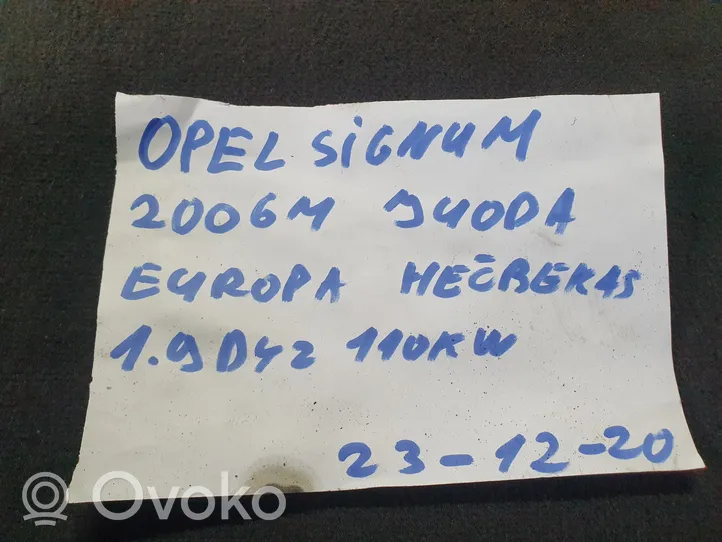 OPEL SiGNUM
2006M JUODA
EUROPA HEČBEKAS
1.9DYZ 110KW
23-12-20
Ovoko